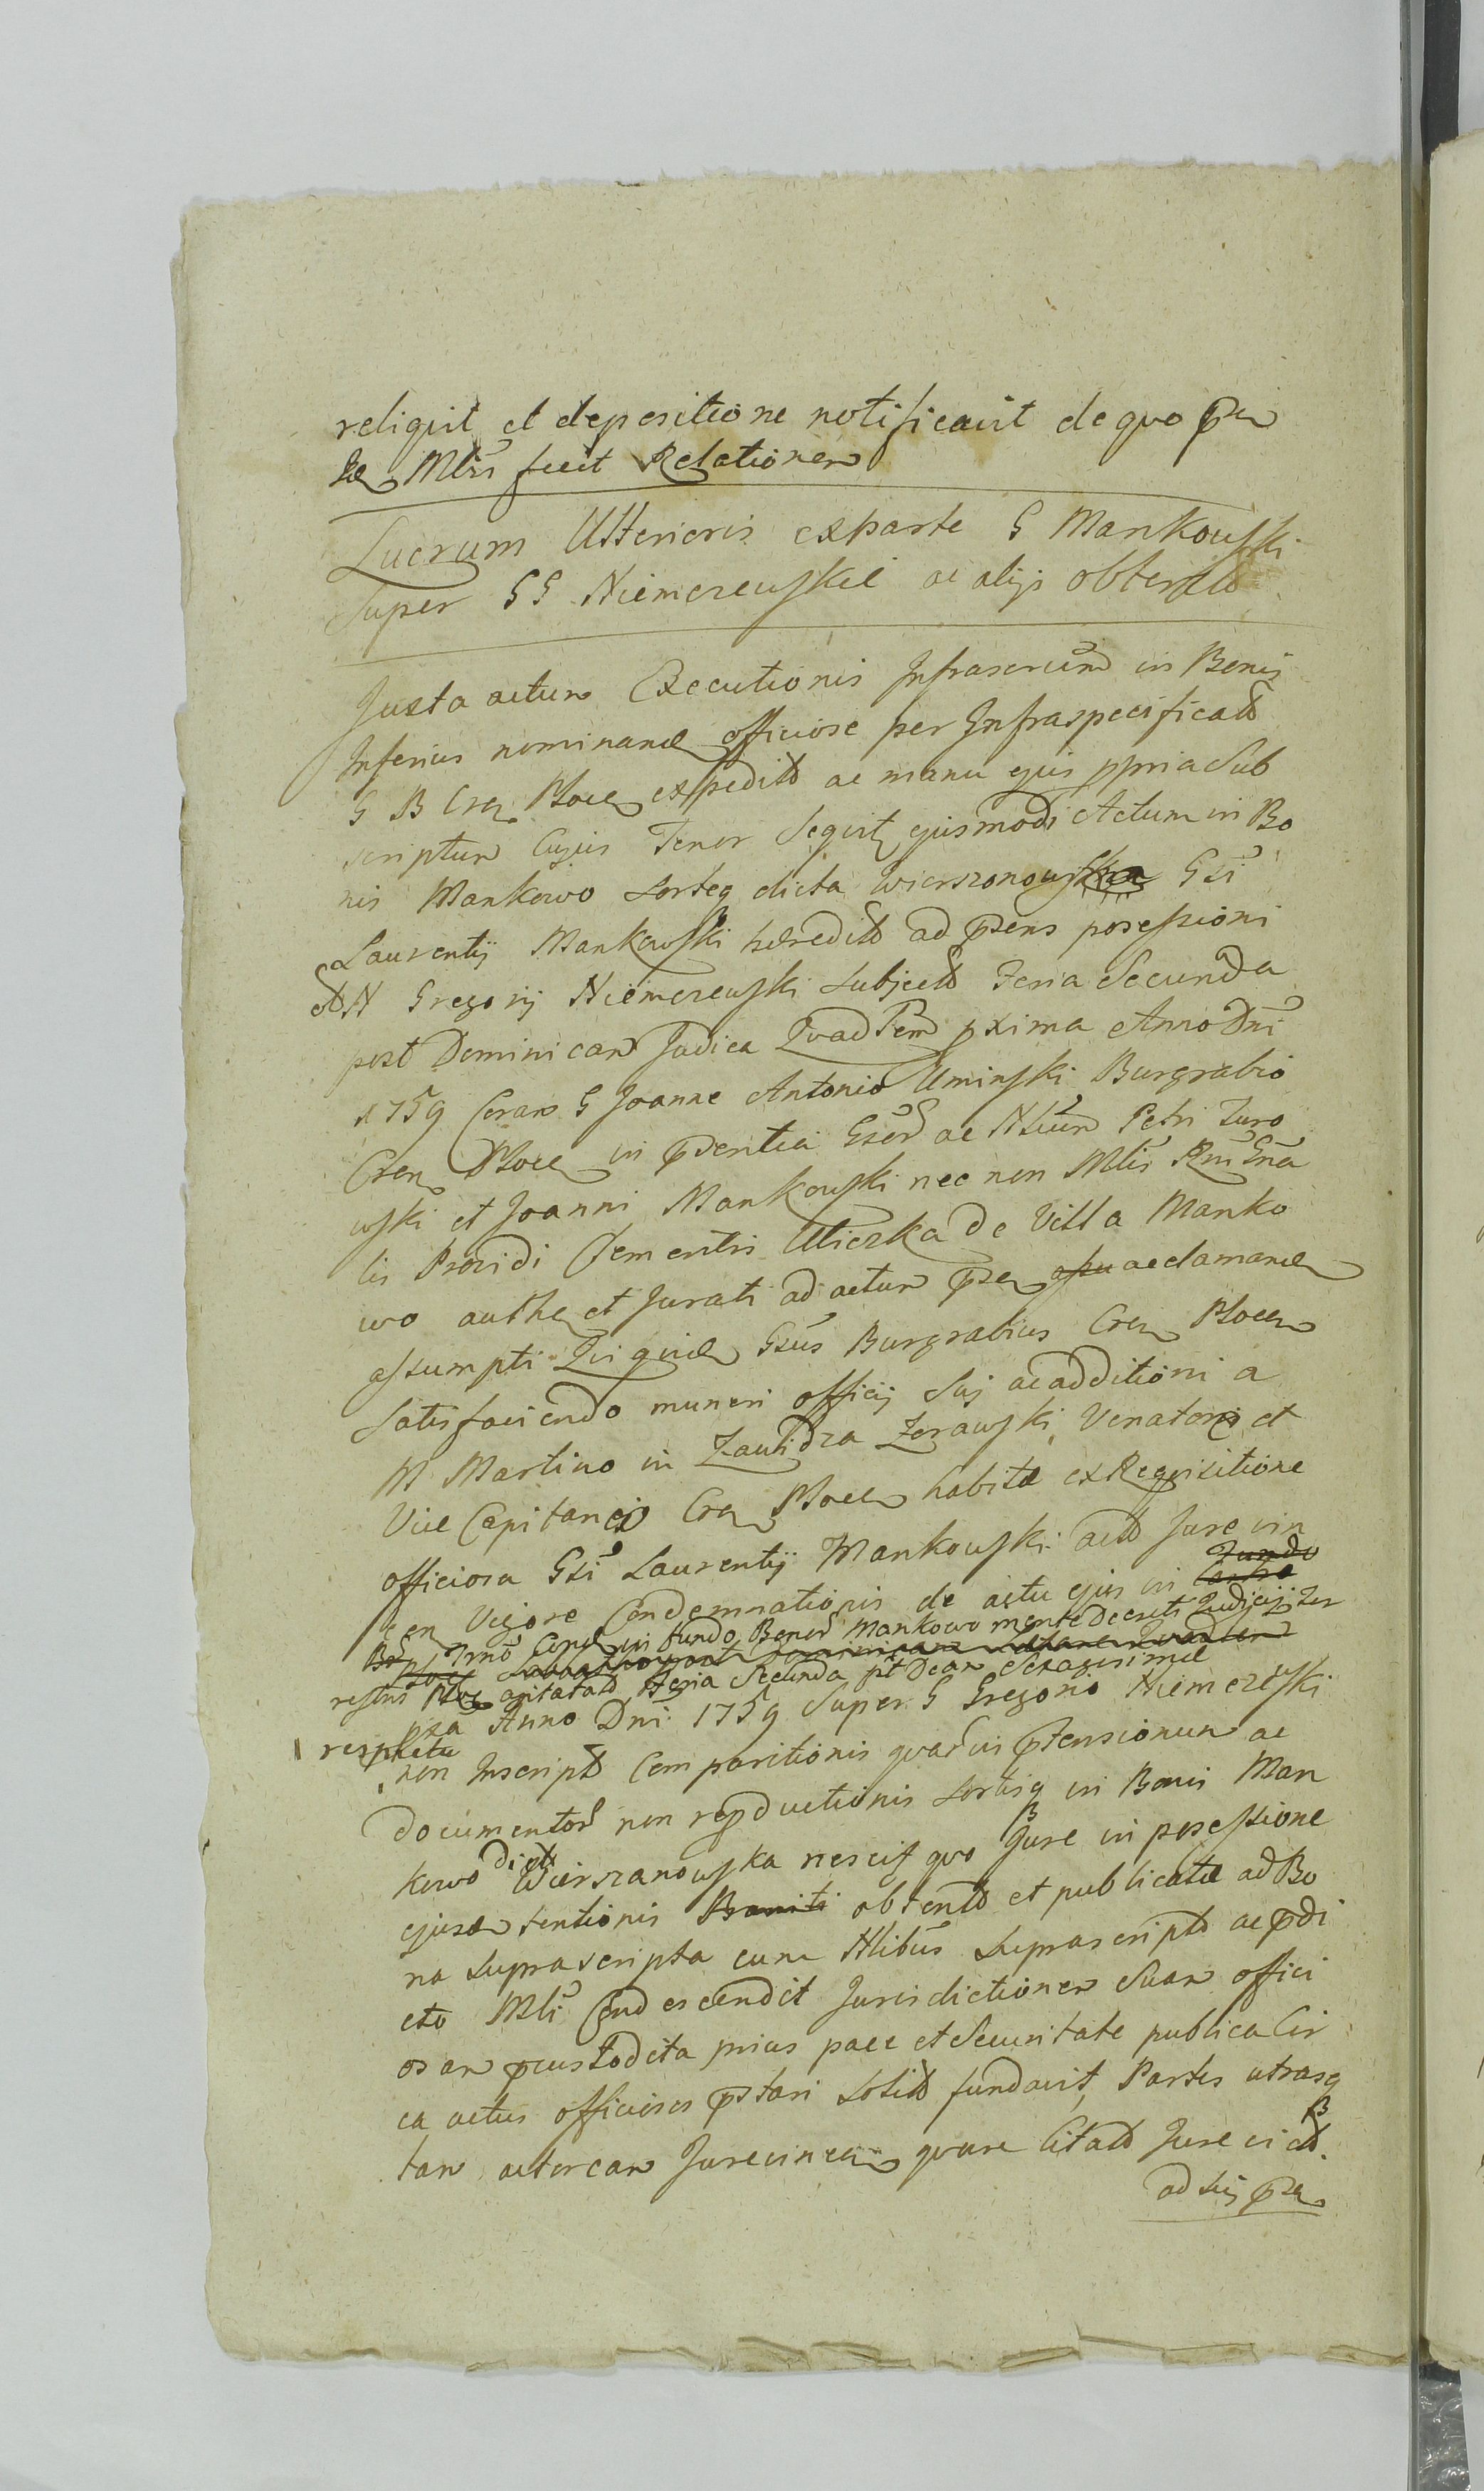 reliquit et depositione notificavit de quo pn
se Mlis fecit Relationem
Lucrum Ulterioris ex parte G Mankowski
Super GG Niemczewskie ac alijs obtent
Juxta actum Executionis Infrascrium in Bonis
Inferius nominand officiose per Infraspecificat
G B Cren Plocen expedit ac manu ejus ppria Sub
scriptum Cujus Tenor Sequit ejusmodi Actum in Bo
nis Mankowo sorteq dicta Wierszonowska Gsi
Laurentij Mankowski heredit ad psens possessioni
N Gregorij Niemczewski subject Feria Secunda
post Dominicam Judica Quad pxima Anno Dni
1759 Coram G Joanne Antonio Uminski Burgrabio
Cren Plocen in psdentia Gser ac Nlium Petri Zuro
wski et Joanni Mankowski nec non Mlis Rni Gna
lis Providi Clementis Uliczka de Villa Manko
wo authen et Jurati ad actum psen acclamand
assumpti Qui quid Gsus Burgrabius Cren Plocen
Satisfaciendo muneri officij Suj ac additioni a
M Martino in Zawidza Zorawski Venatori et
Vice Capitaneo Cren Plocen habita ex Requisitione
officiosa Gsi Laurentij Mankowski act Jure vin
cen Vigore Condemnationis de actu ejus in Fundo
Castro
Trno Cond in fundo Bonor Mankowo mente Decreti Judicij Ter
restris Ploc agitatat Feria Secunda pt Dcam Sexagesimae
pxa Anno Dni 1759 Super G Gregorio Niemczewski
respectu
non Inscript Comparitionis quarvis ptensionum ac
documentor non repductionis sortisq in Bonis Man
kowo dict Wierszanowska nescit quo Jure in possessione
ejusd tentionis Baniti obtent et publicatae ad Bo
na suprascripta cum Nlibus suprascript ac pdi
cto Mli Condescendit Jurisdictionem Suam offici
osam pcustodita prius pace et Securitate publica Cir
ca actus officiosos pstari solit fundavit, Partes utrasq
tam actoream Jurevincen quare Citat Jure vict
ad suj psen